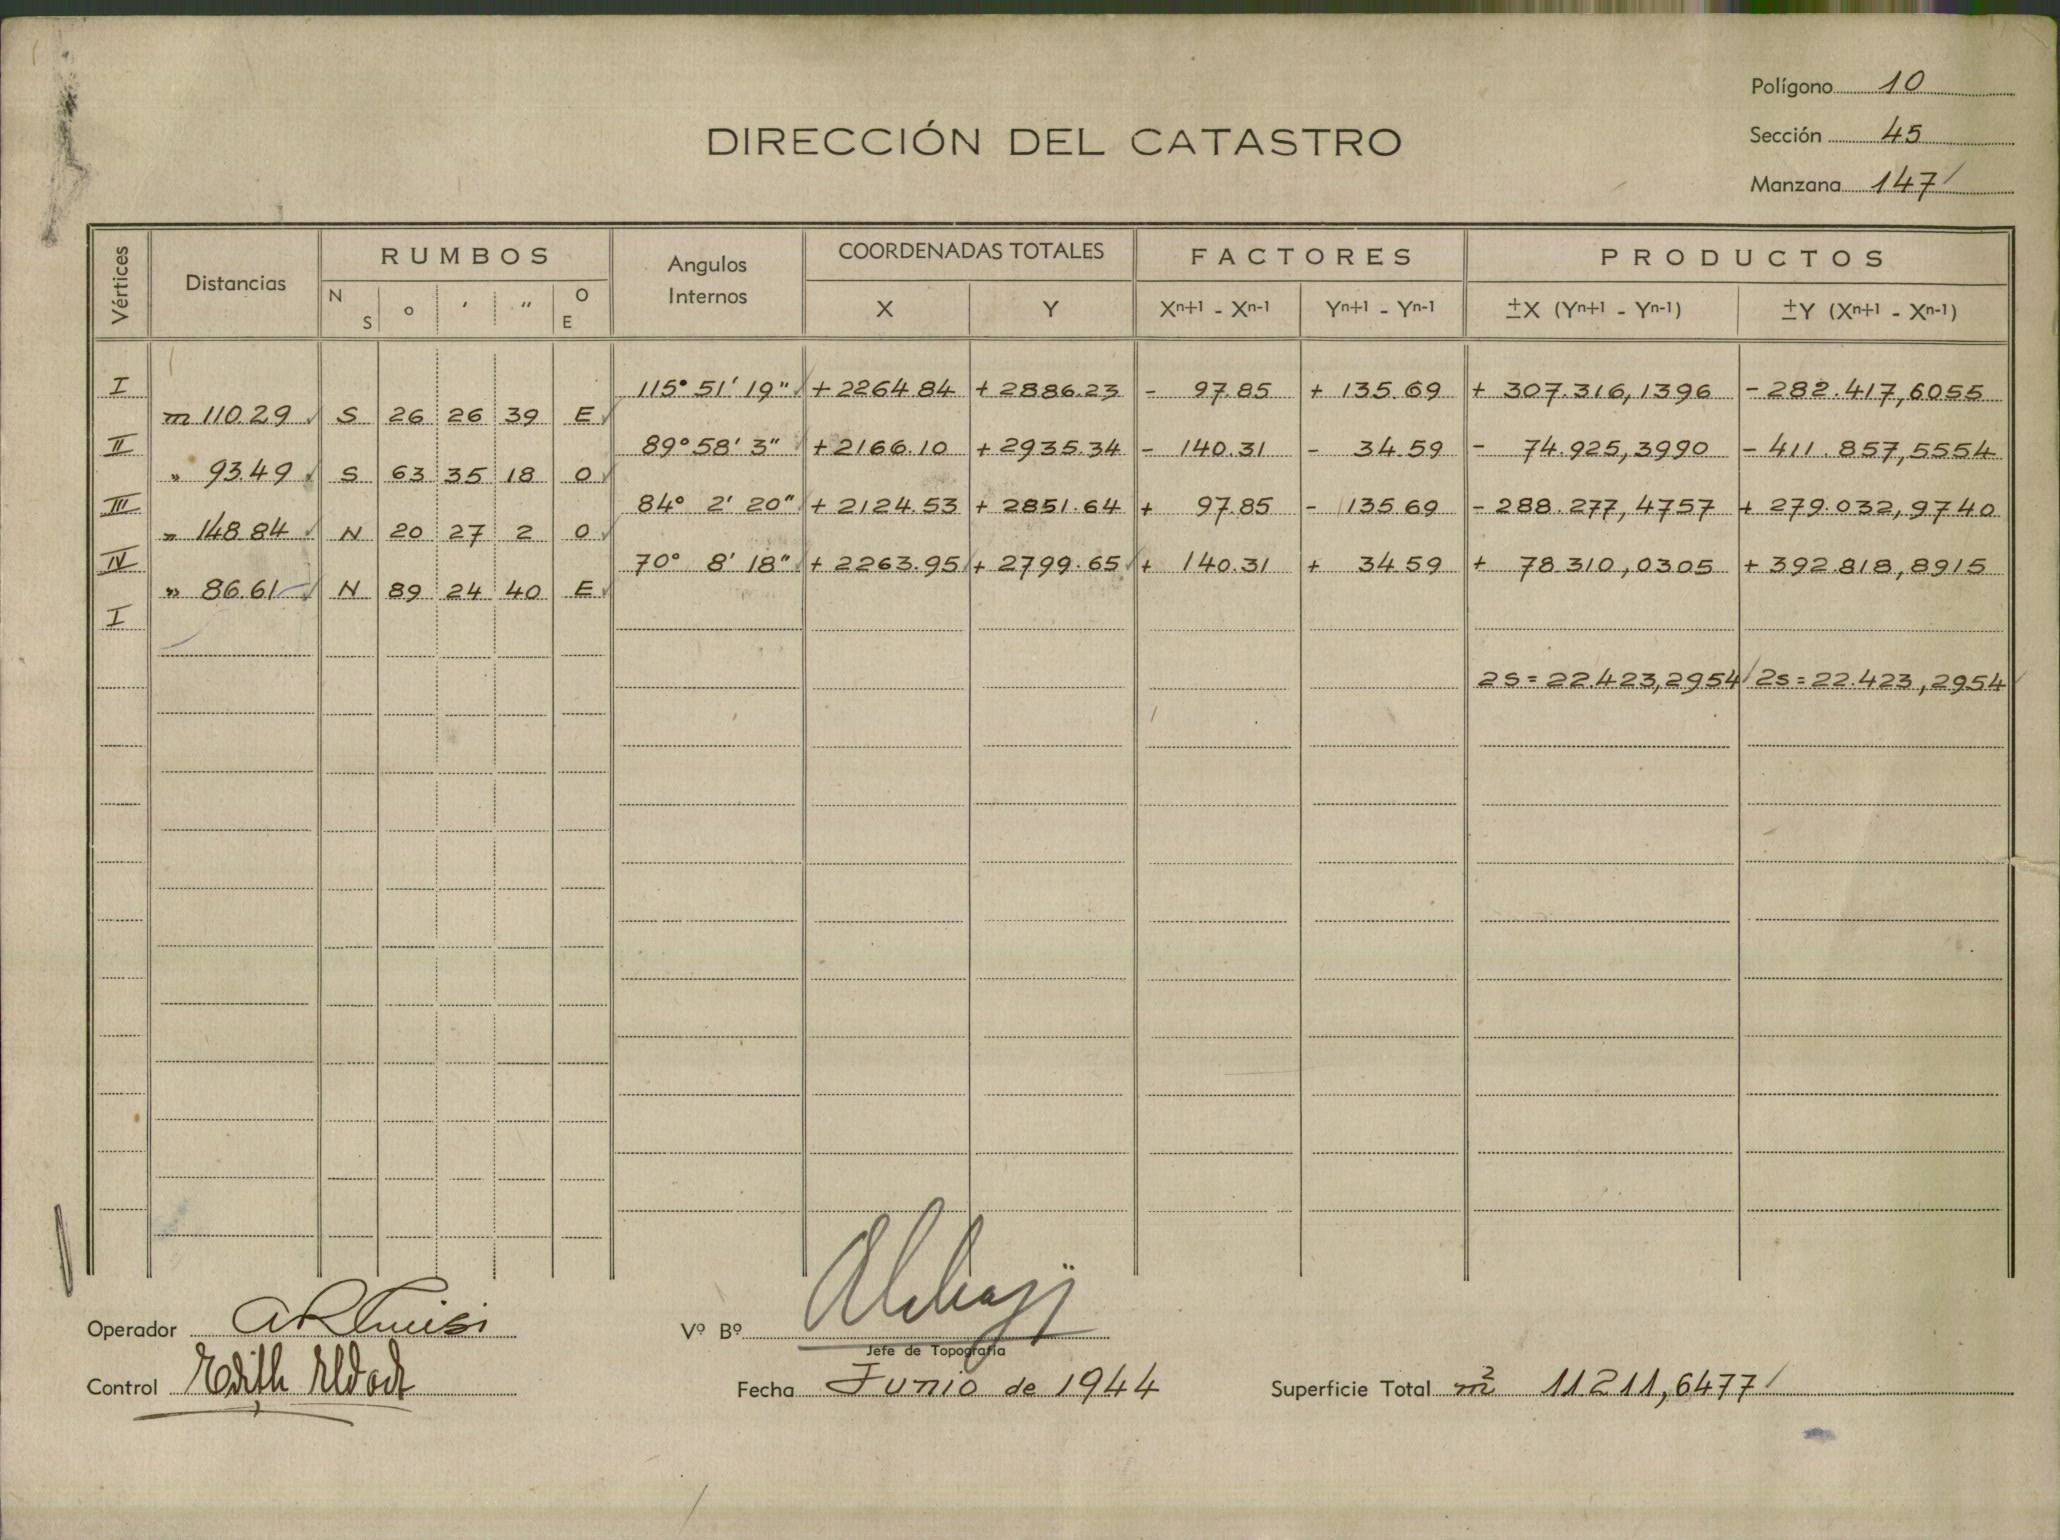 Polígono 10
DIRECCIÓN DEL CATASTRO
Sección 45
Manzana 147
Vértices Distancias RUMBOS Angulos Internos COORDENADAS TOTALES FACTORES PRODUCTOS
N S ° ' " O E X Y Xn+1 - Xn-1 Yn+1 - Yn-1 ±X (Yn+1 - Yn-1) ±Y (Xn+1 - Xn-1)
I 115° 51' 19" + 2264.84 + 2886.23 - 97.85 + 135.69 + 307.316,1396 - 282.417,6055
m 110.29 S 26 26 39 E
II 89° 58' 3" + 2166.10 + 2935.34 - 140.31 - 34.59 - 74.925,3990 - 411.857,5554
" 93.49 S 63 35 18 O
III 84° 2' 20" + 2124.53 + 2851.64 + 97.85 - 135.69 - 288.277,4757 + 279.032,9740
" 148.84 N 20 27 2 O
IV 70° 8' 18" + 2263.95 + 2799.65 + 140.31 + 34.59 + 78.310,0305 + 392.818,8915
" 86.61 N 89 24 40 E
I
2S = 22.423,2954 2S = 22.423,2954
Operador
Vº Bº
Jefe de Topografía
Control Edith
Fecha Junio de 1944
Superficie Total m² 11211,6477